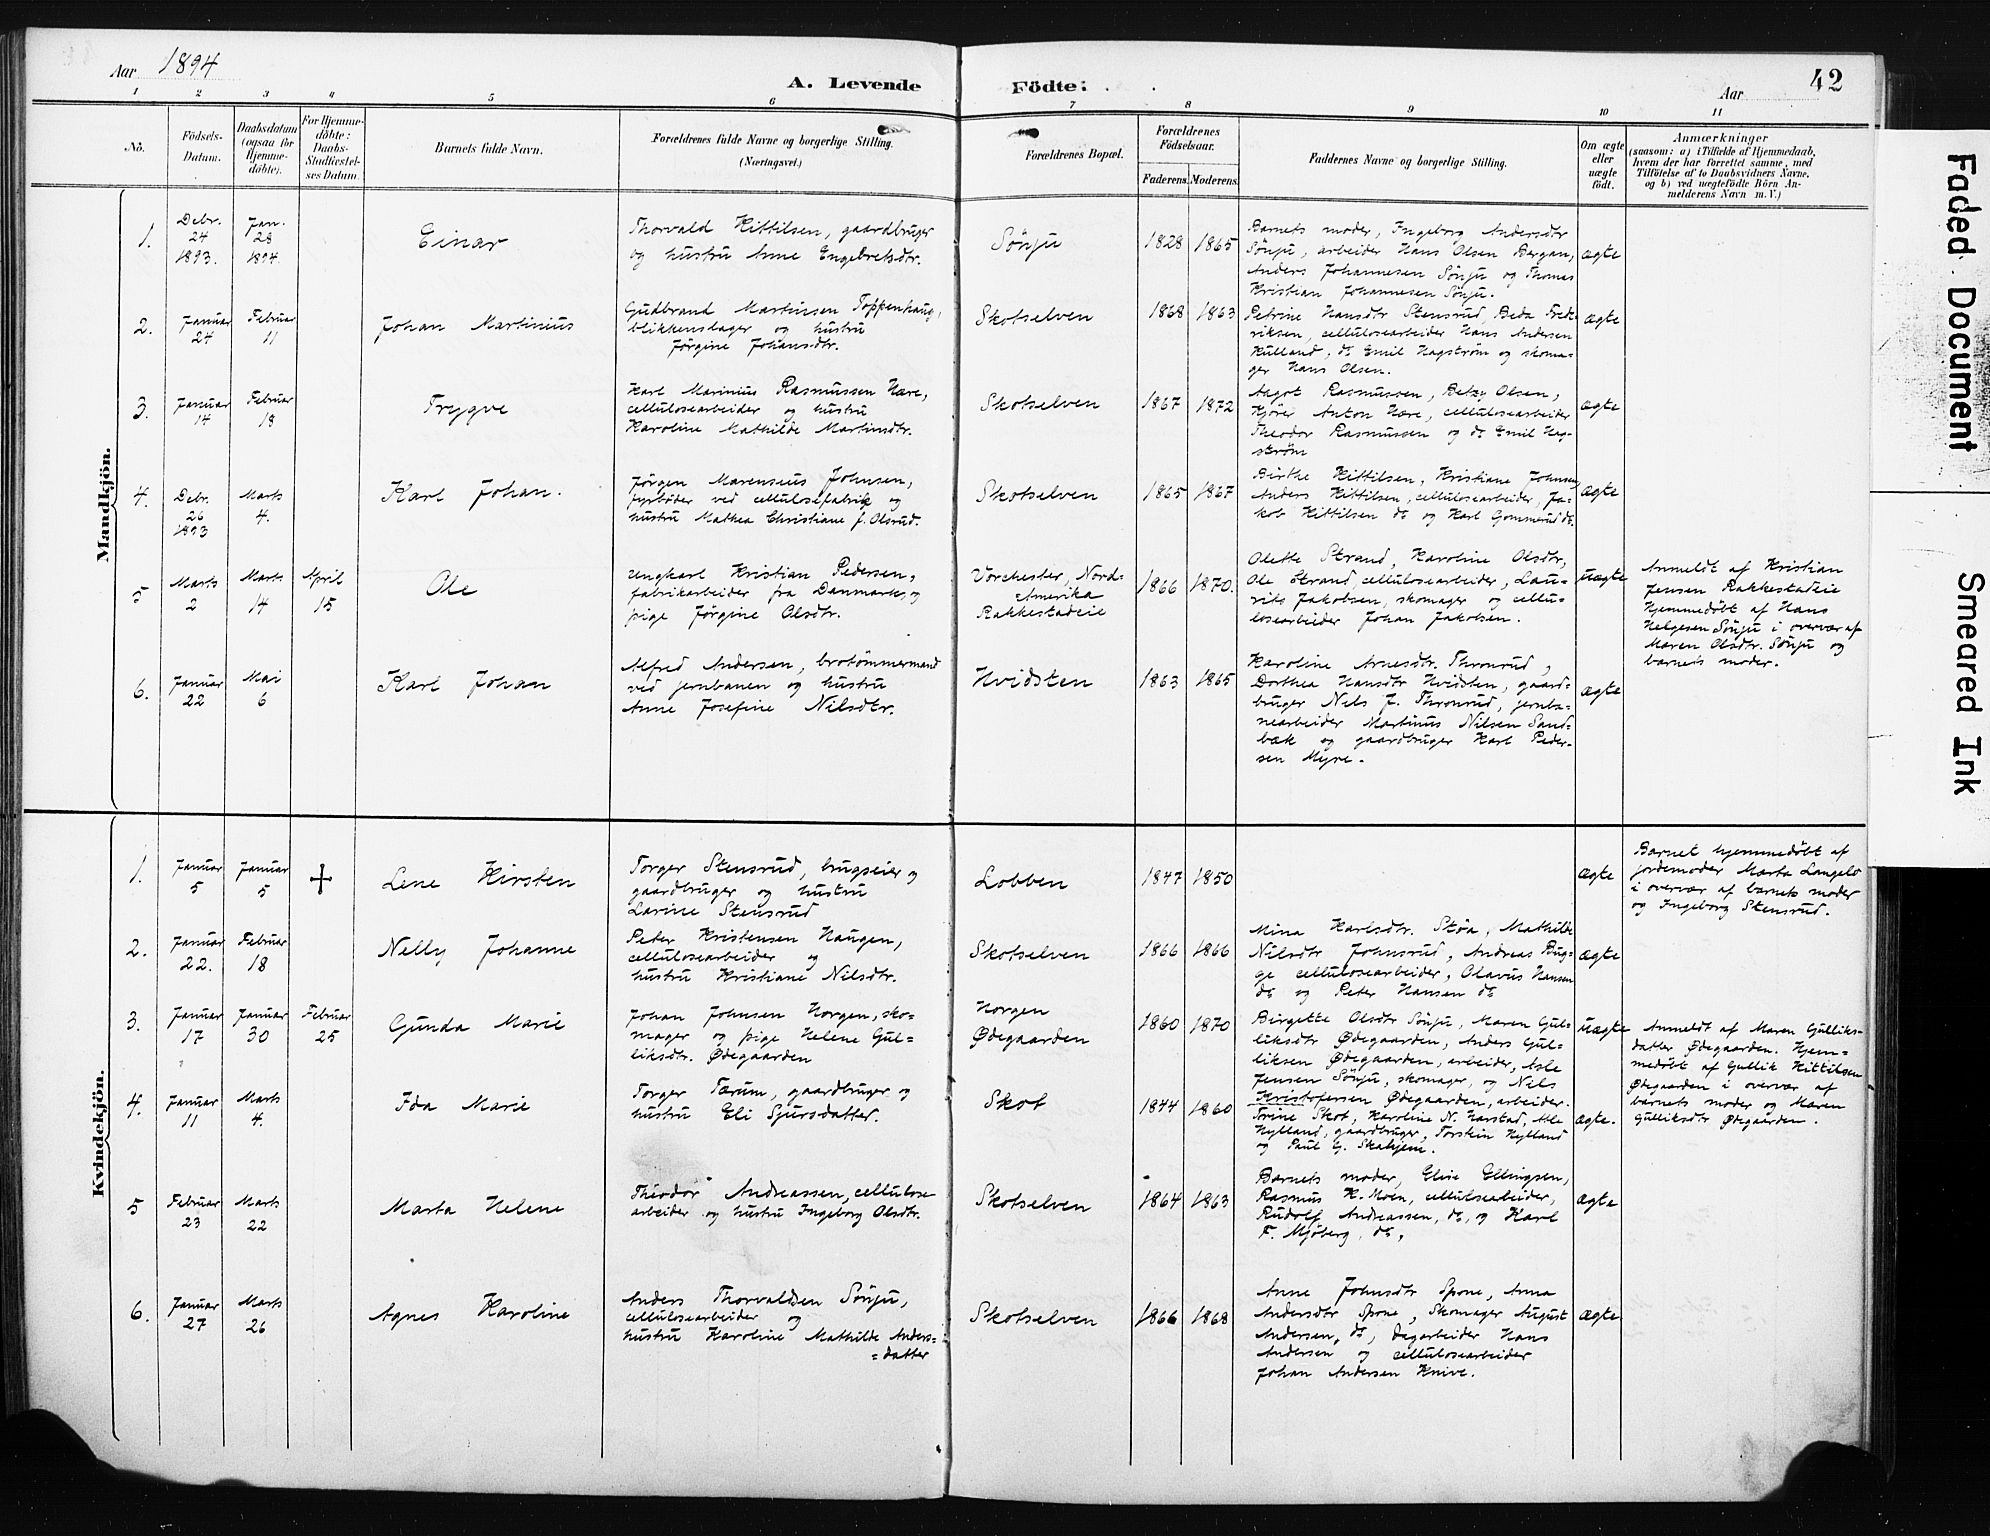 Aar 1894
A. Levende Födte:
Aar
42
1 2 3 4 5 6 7 8 9 10 11
Nö.
Födsels-
Datum.
Daabsdatum
(ogsaa for
Hjemme-
döbte).
For Hjemme-
döbte:
Daabs-
Stadfæstel-
ses Datum.
Barnets fulde Navn.
Forældrenes fulde Navne og borgerlige Stilling.
(Næringsvei.)
Forældrenes Bopæl.
Forældrenes
Födselsaar.
Faderens.
Moderens.
Faddernes Navne og borgerlige Stilling.
Om ægte
eller
uægte
födt.
Anmærkninger
(saasom: a) i Tilfælde af Hjemmedaab,
hvem der har forrettet samme, med
Tilföielse af to Daabsvidners Navne,
og b) ved uægtefödte Börn An-
melderens Navn m. V.)
Mandkjön.
1.
Debr.
24
1893.
Jan.
28
1894.
Einar
Thorvald Kittilsen, gaardbruger
og hustru Anne Engebretsdtr.
Sönju
1828 1865
Barnets moder, Ingeborg Andersdtr
Sönju, arbeider Hans Olsen Bergan,
Anders Johannesen Sönju og Thomas
Kristian Johannesen Sönju.
ægte
2.
Januar
24
Februar
11
Johan Martinius
Gudbrand Martinsen Toppenhaug,
blikkenslager og hustru
Jörgine Johansdtr.
Skotselven
1868 1863
Petrine Hansdtr Stensrud, Beda Fred-
riksen, cellulosearbeider Hans Andersen
Hulland, do Emil Hagström og skoma-
ger Hans Olsen.
ægte
3.
Januar
14
Februar
18
Trygve
Karl Marinius Rasmussen Nære,
cellulosearbeider og hustru
Karoline Mathilde Martinsdtr.
Skotselven
1867 1872
Aagot Rasmussen, Betzy Olsen,
Kjörer Anton Nære, cellulosearbeider
Theodor Rasmussen og do Emil Hag-
ström
ægte
4.
Debr.
26
1893
Marts
4.
Karl Johan.
Jörgen Marensius Johnsen,
fyrböder ved cellulosefabrik og
hustru Mathea Christiane f. Olsrud.
Skotselven
1865 1867
Birthe Kittilsen, Kristiane Johnsen,
Anders Kittilsen, cellulosearbeider, Ja-
kob Kittilsen do og Karl Gommerud do.
ægte
5
Marts
2
Marts
14
April
15
Ole
ungkarl Kristian Pedersen,
fabrikarbeider fra Danmark, og
pige Jörgine Olsdtr.
Vorchester, Nord-
Amerika
Rakkestadeie
1866 1870.
Olette Strand, Karoline Olsdtr,
Ole Strand cellulosearbeider, Lau-
rits Jakobsen, skomager og cellu-
losearbeider Johan Jakobsen.
uægte
Anmeldt af Kristian
Jensen Rakkestadeie
Hjemmedöbt af Hans
Helgesen Sönju i overvær af
Maren Olsdtr. Sönju og
barnets moder.
6.
Januar
22
Mai
6
Karl Johan
Alfred Andersen, brotömmermand
ved jernbanen og hustru
Anne Josefine Nilsdtr.
Hvidsten
1863 1865
Karoline Arnesdtr. Thronrud,
Dorthea Hansdtr Hvidsten, gaard-
bruger Nils J. Thronrud, jernba-
nearbeider Martinus Nilsen Sand-
bæk og gaardbruger Karl Peder-
sen Myre.
ægte
Kvindekjön.
1.
Januar
5
Januar
5
+
Lene Kirsten
Torger Stensrud, brugseier og
gaardbruger og hustru
Lavine Stensrud
Lobben
1847 1850
ægte
Barnet hjemmedöbt af
jordemoder Marta Langelö
i overvær af barnets moder
og Ingeborg Stensrud.
2.
Januar
22.
Februar
18
Nelly Johanne
Peter Kristensen Haugen,
cellulosearbeider og
hustru Kristiane Nilsdtr.
Skotselven
1866 1866
Mina Karlsdtr. Stöa, Mathilde
Nilsdtr Johnsrud, Andreas Bug-
ge cellulosearbeider, Olavus Hansen
do og Peter Hansen do
ægte
3.
Januar
17
Januar
30
Februar
25
Gunda Marie
Johan Johnsen Horgen, sko-
mager og pige Helene Gul-
liksdtr. Ødegaarden
Horgen
Ødegaarden
1860 1870
Birgette Olsdtr Sönju, Maren Gul-
liksdtr Ødegaarden, Anders Gul-
liksen Ødegaarden, arbeider, Asle
Jensen Sönju, skomager, og Nils
Kristofersen Ødegaarden, arbeider.
uægte
Anmeldt af Maren Gulliks-
datter Ødegaarden. Hjem-
medöbt af Gullik Kittilsen
Ødegaarden i overvær af
barnets moder og Maren
Gulliksdtr Ødegaarden.
4.
Januar
11
Marts
4.
Ida Marie
Torger Tærum, gaardbruger og
hustru Eli Sjursdatter.
Skot
1844 1860
Trine Skot, Karoline N. Harstad, Ole
Hylland, gaardbruger, Torstein Hylland
og Paul G. Skahjem.
ægte.
5
Februar
23
Marts
22
Marta Helene
Theodor Andreassen, cellulose-
arbeider og hustru Ingeborg Olsdtr.
Skotselven
1864 1863
Barnets moder, Elise Ellingsen,
Rasmus K. Moen, cellulosearbeider,
Rudolf Andreassen, do, og Karl
F. Mjöberg, do,
ægte
6.
Januar
27
Marts
26
Agnes Karoline
Anders Thorvaldsen Sönju,
cellulosearbeider og
hustru Karoline Mathilde Anders-
=datter
Skotselven
1866 1868
Anne Johnsdtr Spone, Anna
Andersdtr Spone, Skomager August
Andersen, do, dagarbeider Hans
Andersen og cellulosearbeider
Johan Andersen Knive.
ægte
Faded Document
Smeared Ink